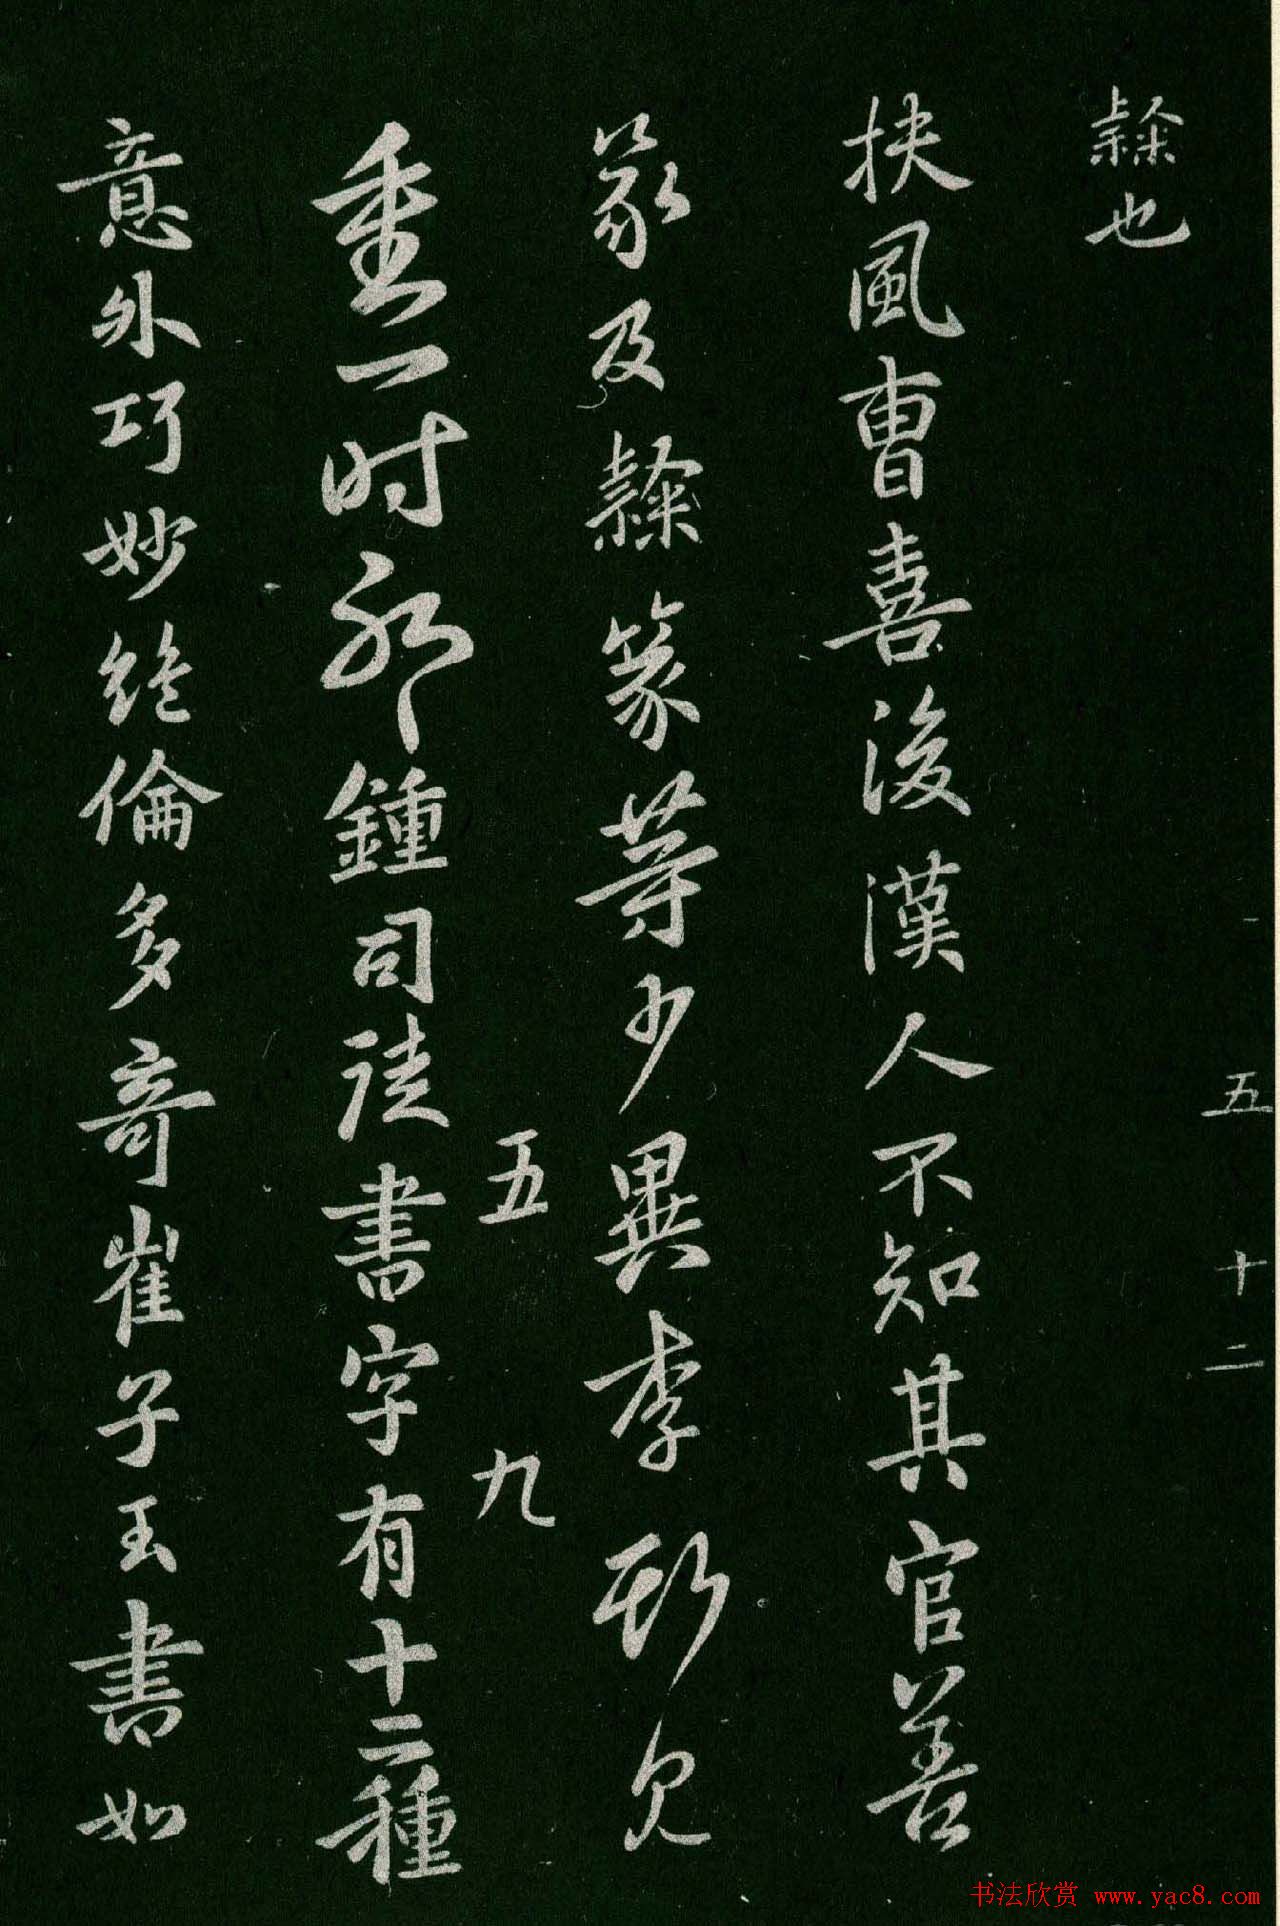 五 十二
隸也
扶風曹喜後漢人不知其官善
篆及隸篆等少異李斯見
五 九
重一时邪鍾司徒書字有十二種
意外巧妙绝倫多奇崔子玉書如
书法欣赏 www.yac8.com